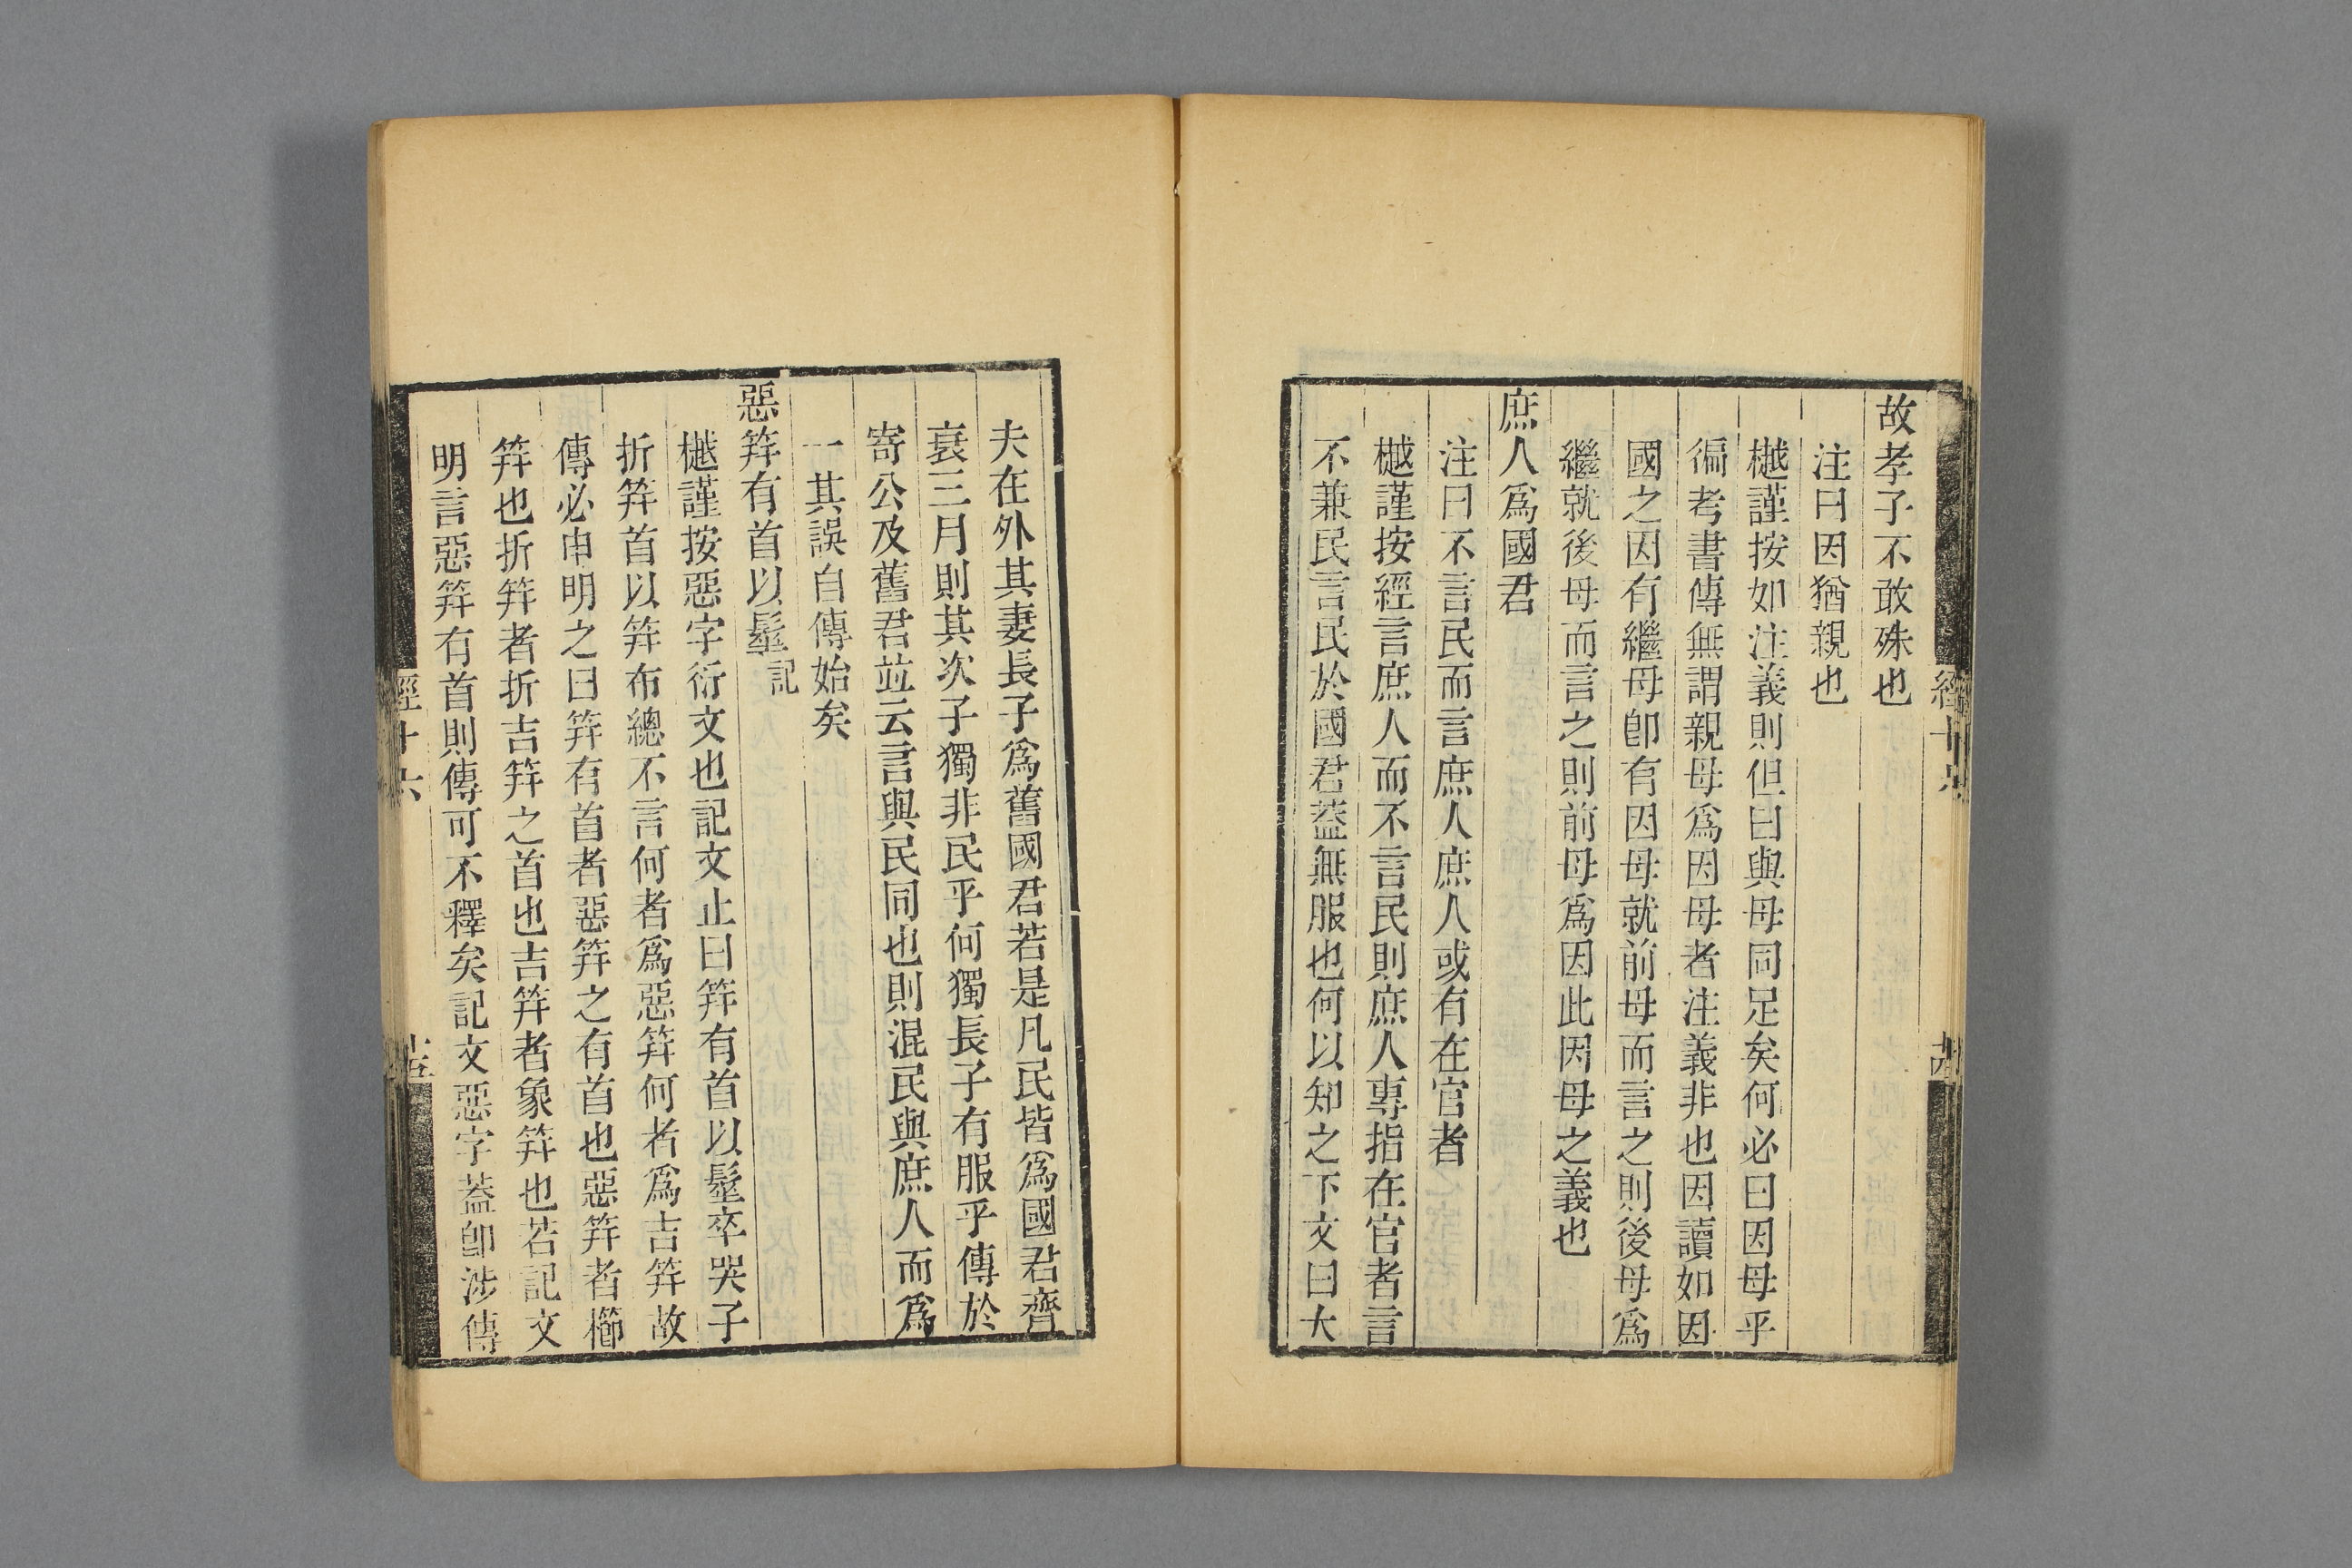 故孝子不敢殊也
注曰因猶親也
樾謹按如注義則但曰與母同足矣何必曰因母乎
徧考書傳無謂親母爲因母者注義非也因讀如因
國之因有繼母卽有因母就前母而言之則後母爲
繼就後母而言之則前母爲因此因母之義也
庶人爲國君
注曰不言民而言庶人庶人或有在官者
樾謹按經言庶人而不言民則庶人專指在官者言
不兼民言民於國君葢無服也何以知之下文曰大
夫在外其妻長子爲舊國君若是凡民皆爲國君齊
衰三月則其次子獨非民乎何獨長子有服乎傳於
寄公及舊君竝云言與民同也則混民與庶人而爲
一其誤自傳始矣
惡筓有首以髽記
樾謹按惡字衍文也記文止曰筓有首以髽卒哭子
折筓首以筓布總不言何者爲惡筓何者爲吉筓故
傳必申明之曰筓有首者惡筓之有首也惡筓者櫛
筓也折筓者折吉筓之首也吉筓者象筓也若記文
明言惡筓有首則傳可不釋矣記文惡字葢卽涉傳
經十六